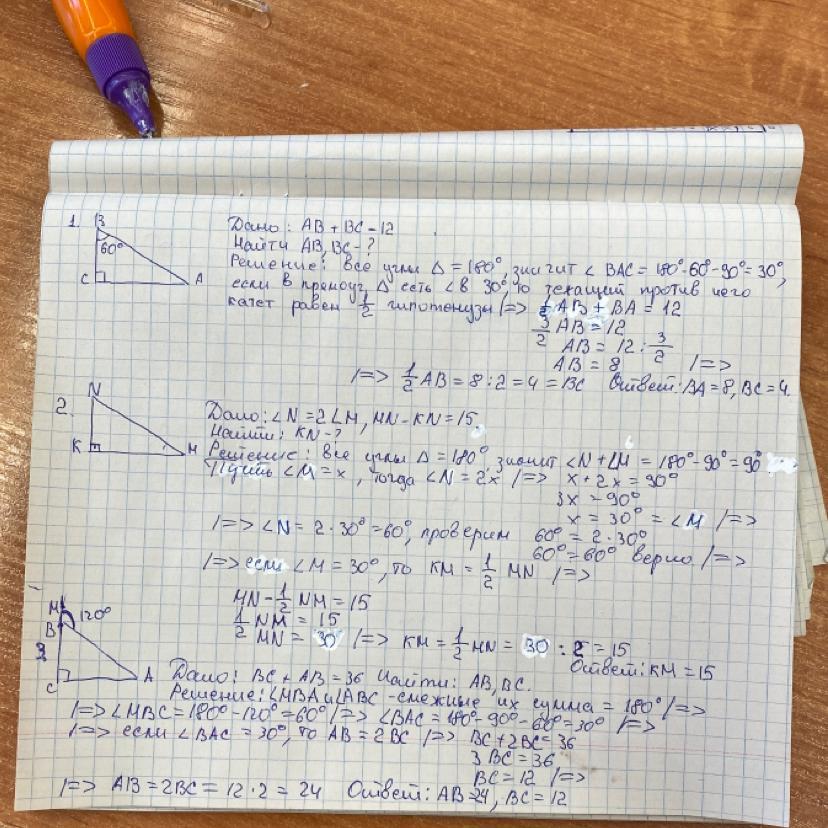 1. B
60°
C A
Дано: AB + BC = 12
Найти AB, BC - ?
Решение: все углы Δ = 180°, значит ∠ BAC = 180°-60°-90° = 30°,
если в прямоуг. Δ есть ∠ в 30°, то лежащий против него
катет равен 1/2 гипотенузы |=> 1/2 AB + BA = 12
3/2 AB = 12
AB = 12 : 3/2
AB = 8 |=>
|=> 1/2 AB = 8 : 2 = 4 = BC Ответ: BA = 8, BC = 4.
2. N
K M
Дано: ∠N = 2∠M, MN - KN = 15
Найти: KN - ?
Решение: все углы Δ = 180°, значит ∠N + ∠M = 180° - 90° = 90°
Пусть ∠M = x, тогда ∠N = 2x |=> x + 2x = 90°
3x = 90°
x = 30° = ∠M |=>
|=> ∠N = 2 · 30° = 60°, проверим 60° = 2 · 30°
60° = 60° верно |=>
|=> если ∠M = 30°, то KM = 1/2 MN |=>
MN - 1/2 NM = 15
1/2 NM = 15
MN = 30 |=> KM = 1/2 MN = 30 : 2 = 15
Ответ: KM = 15
3
M 120°
B
C A
Дано: BC + AB = 36 Найти: AB, BC.
Решение: ∠MBA и ∠ABC - смежные их сумма = 180° |=>
|=> ∠MBC = 180° - 120° = 60° |=> ∠BAC = 180° - 90° - 60° = 30° |=>
|=> если ∠BAC = 30°, то AB = 2BC |=> BC + 2BC = 36
3BC = 36
BC = 12 |=>
|=> AB = 2BC = 12 · 2 = 24 Ответ: AB = 24, BC = 12